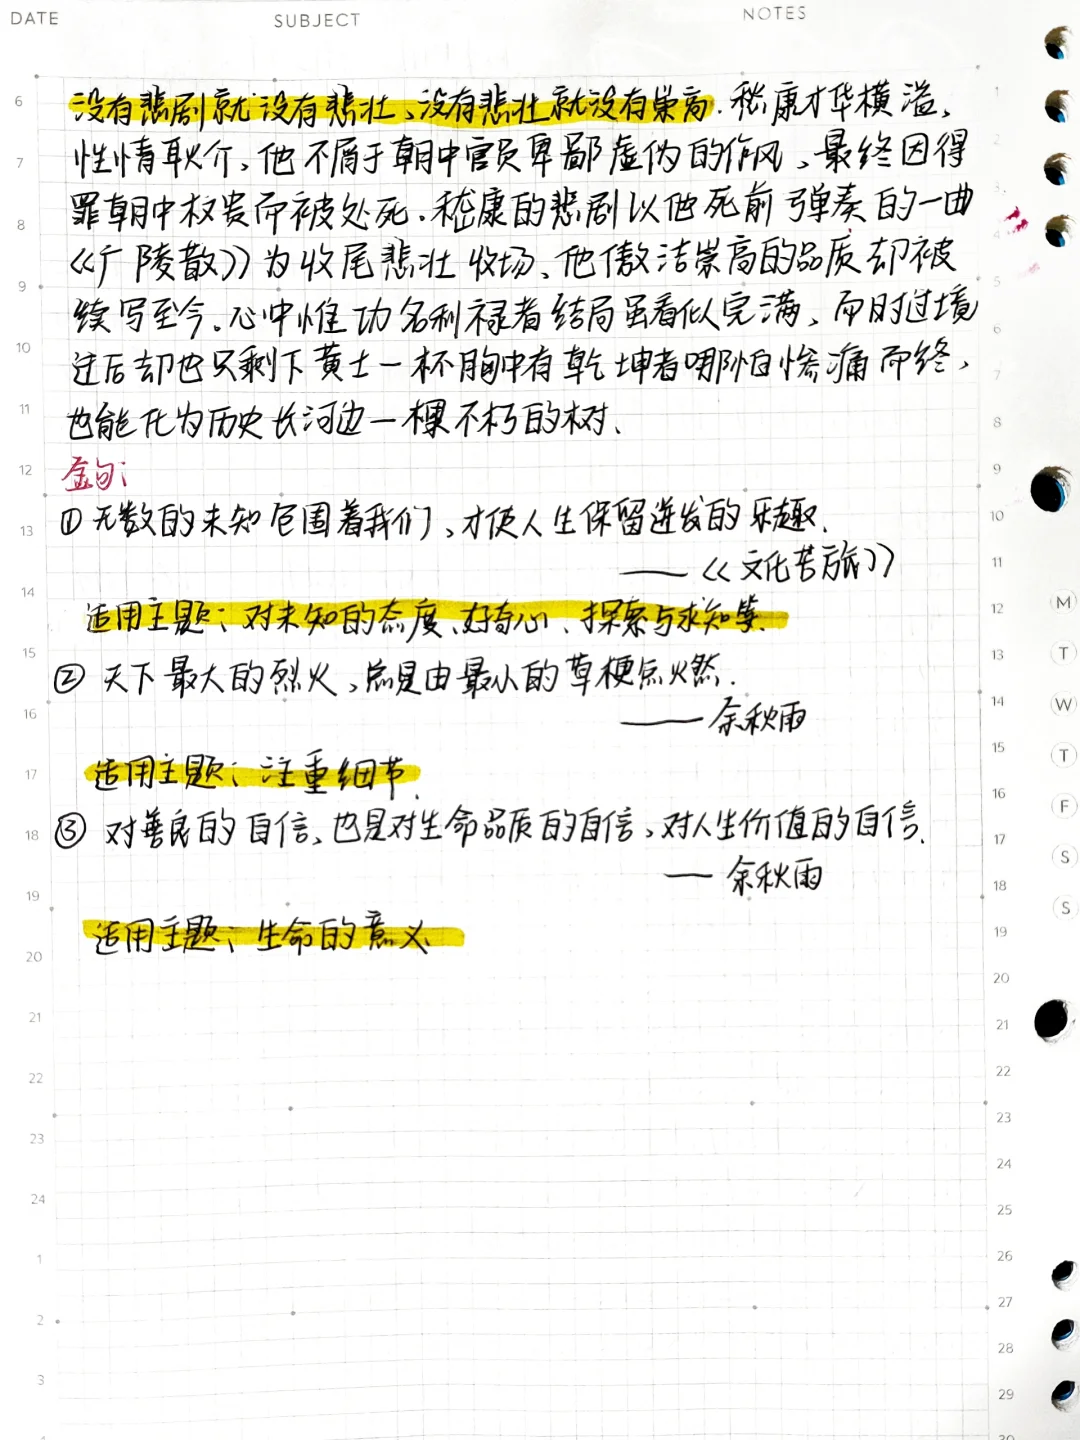 DATE SUBJECT NOTES
没有悲剧就没有悲壮、没有悲壮就没有崇高.嵇康才华横溢,
性情耿介,他不屑于朝中官员卑鄙虚伪的作风、最终因得
罪朝中权贵而被处死.嵇康的悲剧以他死前弹奏的一曲
《广陵散》为收尾悲壮收场、他傲洁崇高的品质却被
续写至今。心中惟功名利禄者结局虽看似完满、而时过境
迁后却也只剩下黄土一杯胸中有乾坤者哪怕惨痛而终,
也能化为历史长河边一棵不朽的树、
金句:
①无数的未知包围着我们、才使人生保留迸发的乐趣.
——《文化苦旅》
适用主题:对未知的态度、好奇心、探索与求知等.
②天下最大的烈火、总是由最小的草梗点火燃.
——余秋雨
适用主题:注重细节.
③对善良的自信、也是对生命品质的自信、对人生价值的自信.
—余秋雨
适用主题:生命的意义、
6
7
8
9
10
11
12
13
14
15
16
17
18
19
20
21
22
23
24
1
2
3
1
2
3
4
5
6
7
8
9
10
11
12
13
14
15
16
17
18
19
20
21
22
23
24
25
26
27
28
29
30
M
T
W
T
F
S
S